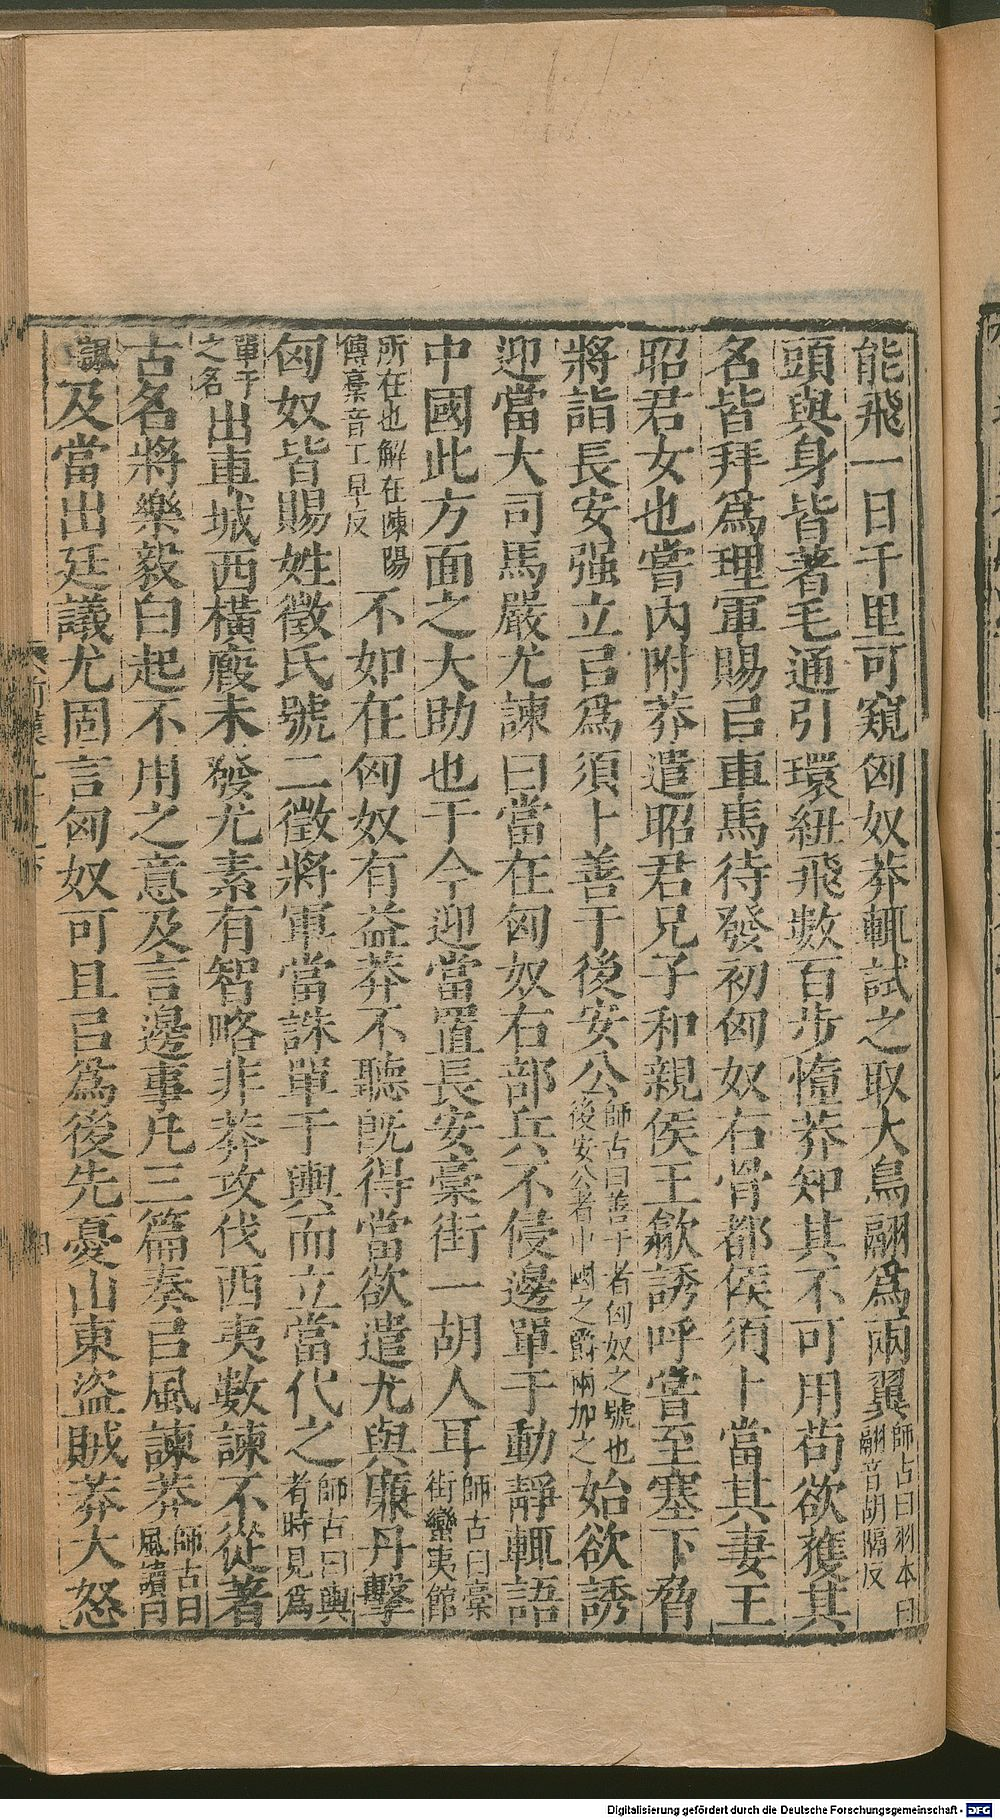 能飛一日千里可窺匈奴莽輒試之取大鳥翮爲兩翼師古曰羽本曰翮音胡隔反
頭與身皆著毛通引環紐飛數百步憧莽知其不可用苟欲獲其
名皆拜爲理軍賜㠯車馬待發初匈奴右骨都侯須卜當其妻王
昭君女也嘗内附莽遣昭君兄子和親侯王歙誘呼當至塞下脅
將詣長安强立㠯爲須卜善于後安公師古曰善于者匈奴之號也後安公者中國之爵兩加之始欲誘
迎當大司馬嚴尤諫曰當在匈奴右部兵不侵邊單于動靜輒語
中國此方面之大助也于今迎當置長安稾街一胡人耳師古曰稾街蠻夷館
所在也解在陳陽傳稾音工早反不如在匈奴有益莽不聽旣得當欲遣尤與廉丹擊
匈奴皆賜姓徵氏號二徵將軍當誅單于輿而立當代之師古曰輿者時見爲
單于之名出車城西橫廄未發尤素有智略非莽攻伐西夷數諫不從著
古名將樂毅白起不用之意及言邊事凡三篇奏㠯風諫莽師古曰風讀曰
諷及當出廷議尤固言匈奴可且㠯爲後先憂山東盜賊莽大怒
Digitalisierung gefördert durch die Deutsche Forschungsgemeinschaft - DFG